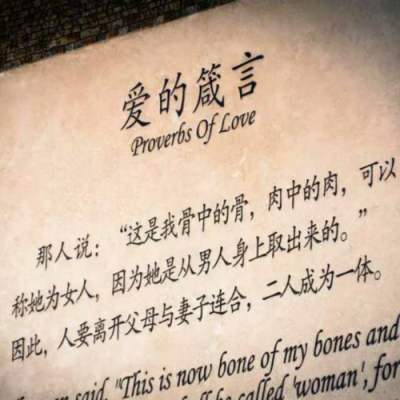 爱的箴言
Proverbs Of Love
那人说：“这是我骨中的骨，肉中的肉，可以
称她为女人，因为她是从男人身上取出来的。”
因此，人要离开父母与妻子连合，二人成为一体。
said, "This is now bone of my bones and
called 'woman', for